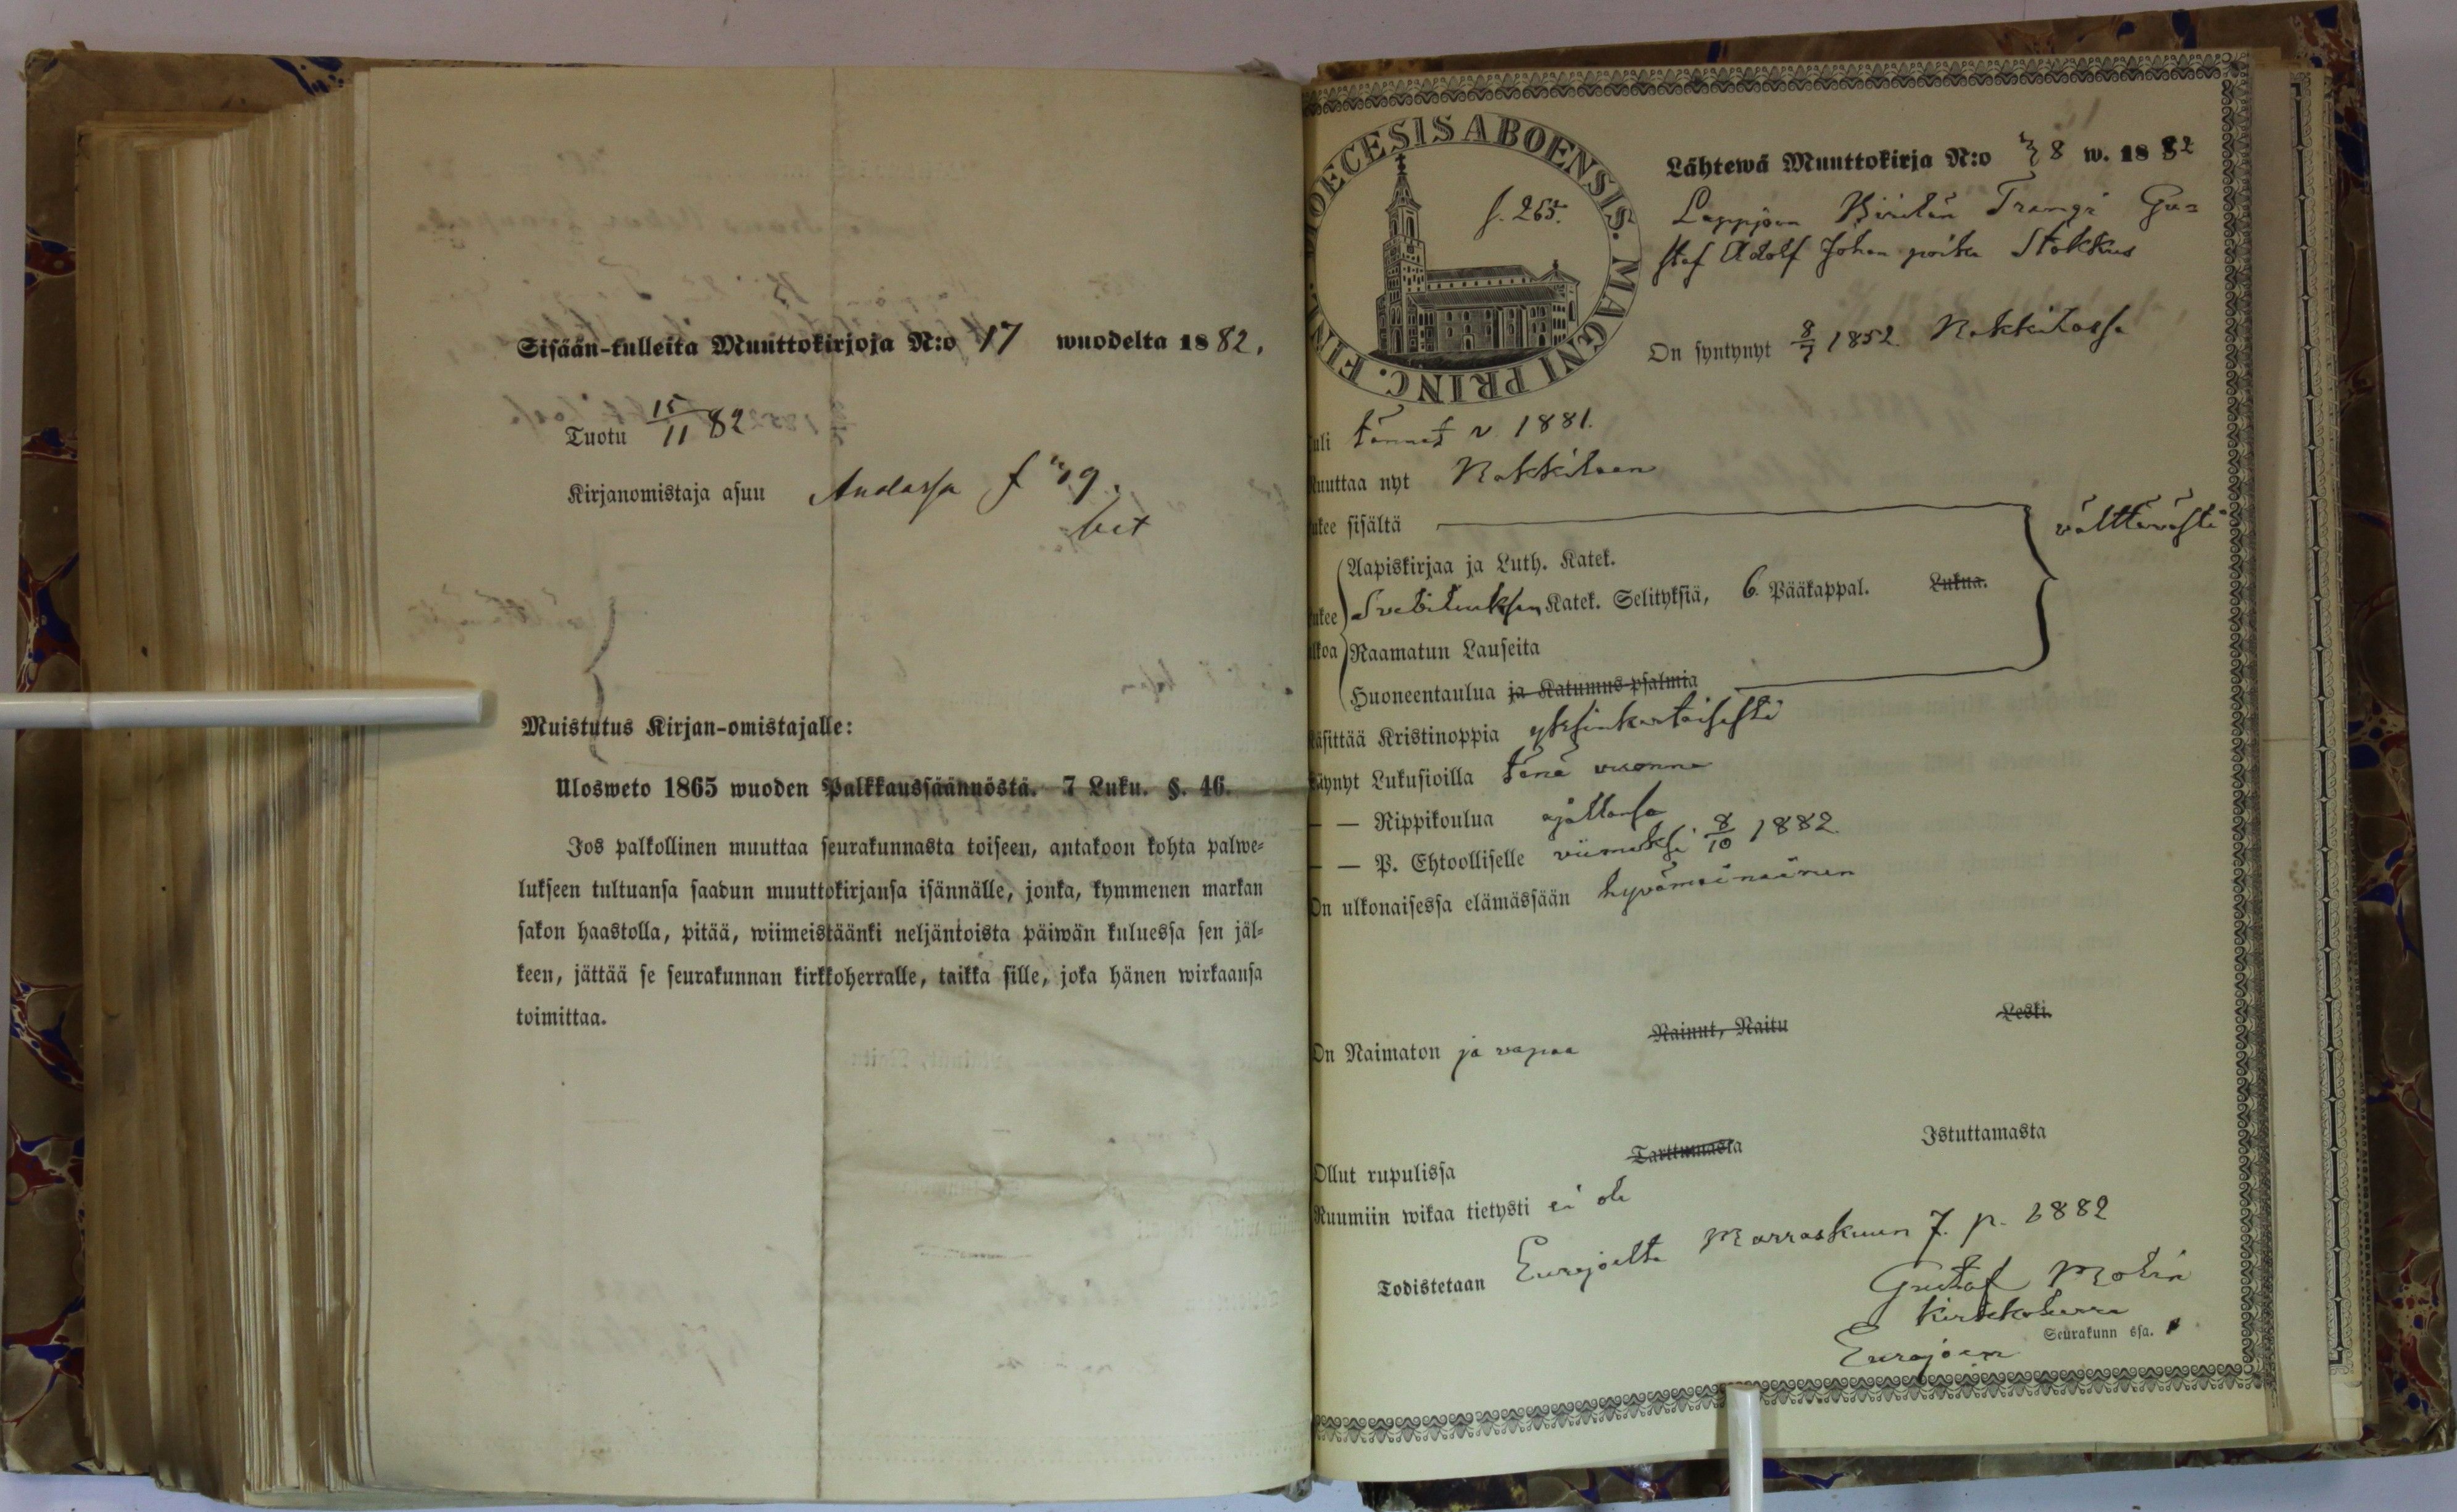 Sisään-tulleita Muuttokirjoja N:o 17 wuodelta 1882.
Tuotu 15/11 82
Kirjanomistaja asuu Anolassa f 19.
bet
Muistutus Kirjan-omistajalle:
Ulosweto 1865 wuoden Palkkaussäännöstä. 7 Luku. §. 46.
Jos palkollinen muuttaa seurakunnasta toiseen, antakoon kohta palwe-
lukseen tultuansa saadun muuttokirjansa isännälle, jonka, kymmenen markan
sakon haastolla, pitää, wiimeistäänki neljäntoista päiwän kuluessa sen jäl-
keen, jättää se seurakunnan kirkkoherralle, taikka sille, joka hänen wirkaansa
toimittaa.
DIOECESIS ABOENSIS. MAGNI PRINC. FINL.
f. 265.
Lähtewä Muuttokirja N:o 78 w. 1882
Lappjoen Trengi Gu=
staf Adolf Johan poika Stokkus
On syntynyt 8/7 1852 Nakkilassa
uli tänne v 1881.
uuttaa nyt Nakkilaan
ukee sisältä välttävästi
Aapiskirjaa ja Luth. Katek.
ukee Svebiliuksen Katek. Selityksiä, 6. Pääkappal. Lukua.
lkoa Raamatun Lauseita
Huoneentaulua ja Katumus-psalmia
äsittää Kristinoppia yksinkertaisesti
äynyt Lukusioilla tänä vuonna
— — Rippikoulua ajallansa
— — P. Ehtoolliselle viimeksi 8/10 1882
On ulkonaisessa elämässään hyvämaineinen
On Naimaton ja vapaa Nainut, Naitu Leski.
Ollut rupulissa Tarttumasta Istuttamasta
Ruumiin wikaa tietysti ei ole
Todistetaan Eurajoelta Marraskuun 7. p. 1882
Gustaf Molin
Kirkkoherra
Eurajoen Seurakunn ssa.